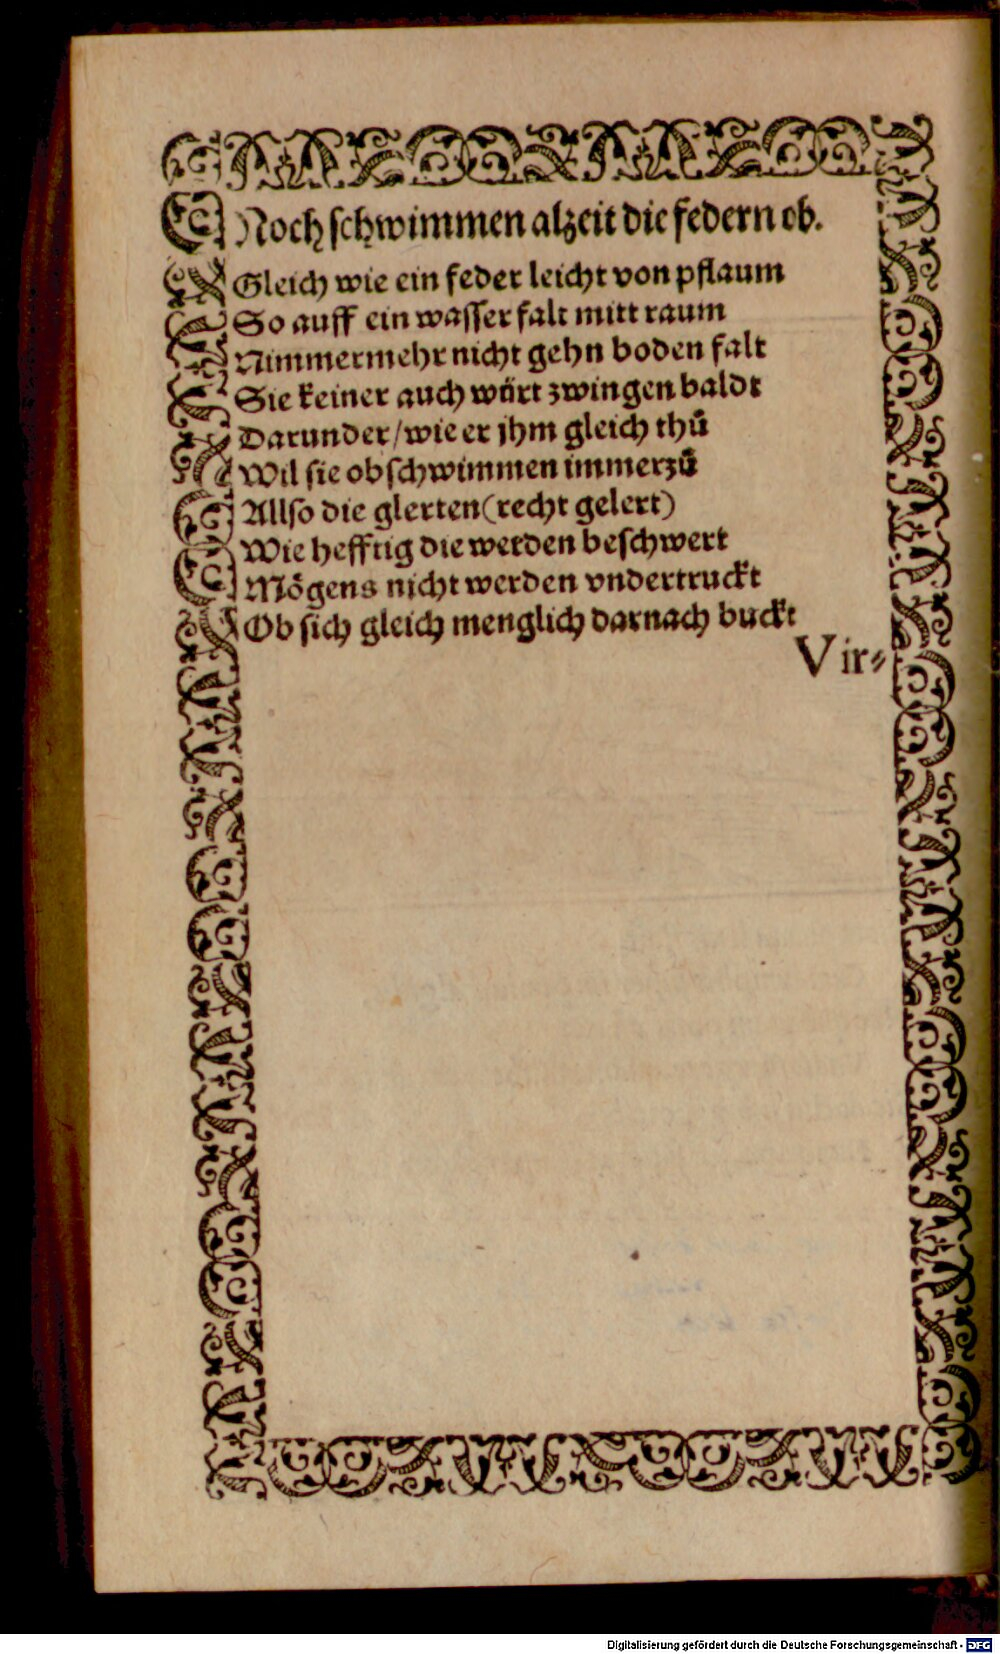 Noch schwimmen alzeit die federn ob.
Gleich wie ein feder leicht von pflaum
So auff ein wasser falt mitt raum
Nimmermehr nicht gehn boden falt
Sie keiner auch würt zwingen baldt
Darunder/wie er jhm gleich thů
Wil sie ob schwimmen immerzů
Allso die glerten(recht gelert)
Wie hefftig die werden beschwert
Mögens nicht werden vndertruckt
Ob sich gleich menglich darnach buckt
Vir⸗
Digitalisierung gefördert durch die Deutsche Forschungsgemeinschaft - DFG